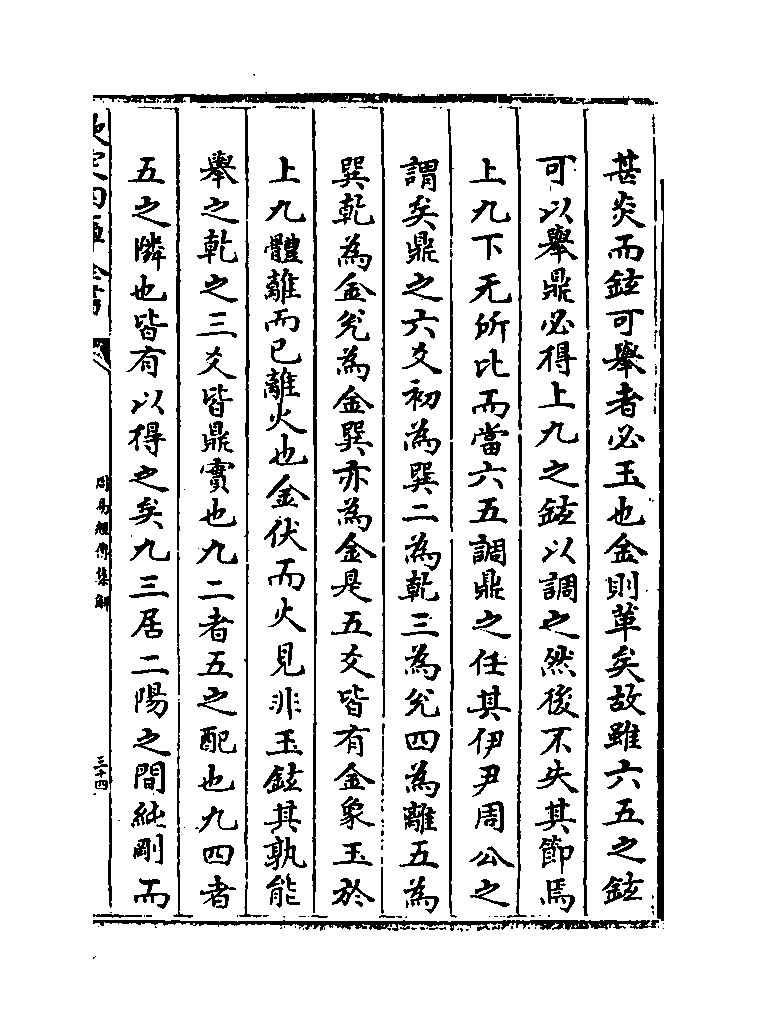 甚炎而鉉可舉者必玉也金則革矣故雖六五之鉉
可以舉鼎必得上九之鉉以調之然後不失其節焉
上九下无所比而當六五調鼎之任其伊尹周公之
謂矣鼎之六爻初為巽二為乾三為兊四為離五為
巽乾為金兊為金巽亦為金是五爻皆有金象玉於
上九體離而已離火也金伏而火見非玉鉉其孰能
舉之乾之三爻皆鼎實也九二者五之配也九四者
五之隣也皆有以得之矣九三居二陽之間純剛而
欽定四庫全書
周易經傳集解
三十四